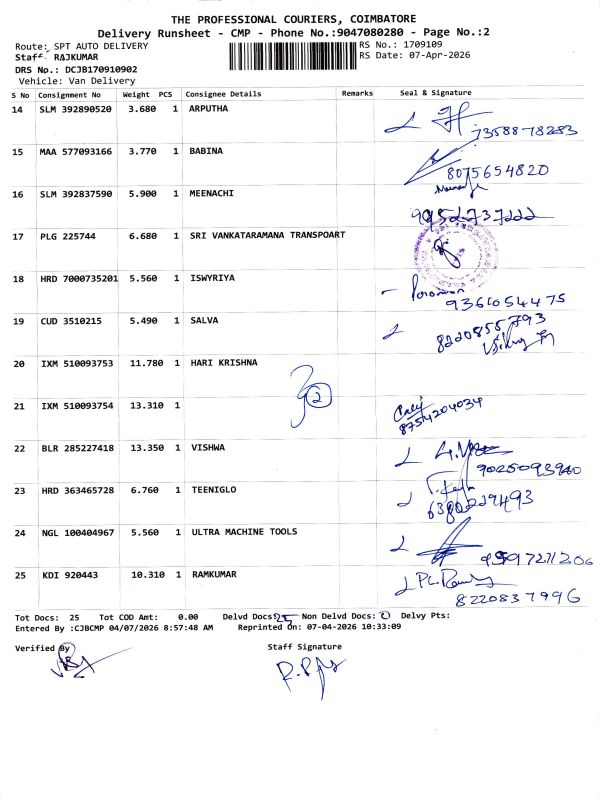 THE PROFESSIONAL COURIERS, COIMBATORE
Delivery Runsheet - CMP - Phone No.:9047080280 - Page No.:2
Route: SPT AUTO DELIVERY
RS No.: 1709109
Staff RAJKUMAR
RS Date: 07-Apr-2026
DRS No.: DCJB170910902
Vehicle: Van Delivery
S No Consignment No Weight PCS Consignee Details Remarks Seal & Signature
14 SLM 392890520 3.680 1 ARPUTHA
7358878283
15 MAA 577093166 3.770 1 BABINA
8075654820
16 SLM 392837590 5.900 1 MEENACHI
17 PLG 225744 6.680 1 SRI VANKATARAMANA TRANSPOART
18 HRD 7000735201 5.560 1 ISWYRIYA
9361054475
19 CUD 3510215 5.490 1 SALVA
8220855793
20 IXM 510093753 11.780 1 HARI KRISHNA
2
21 IXM 510093754 13.310 1
8754204034
22 BLR 285227418 13.350 1 VISHWA
23 HRD 363465728 6.760 1 TEENIGLO
24 NGL 100404967 5.560 1 ULTRA MACHINE TOOLS
25 KDI 920443 10.310 1 RAMKUMAR
8220837996
Tot Docs: 25 Tot COD Amt: 0.00 Delvd Docs: 25 Non Delvd Docs: 0 Delvy Pts:
Entered By :CJBCMP 04/07/2026 8:57:48 AM Reprinted On: 07-04-2026 10:33:09
Verified By
Staff Signature